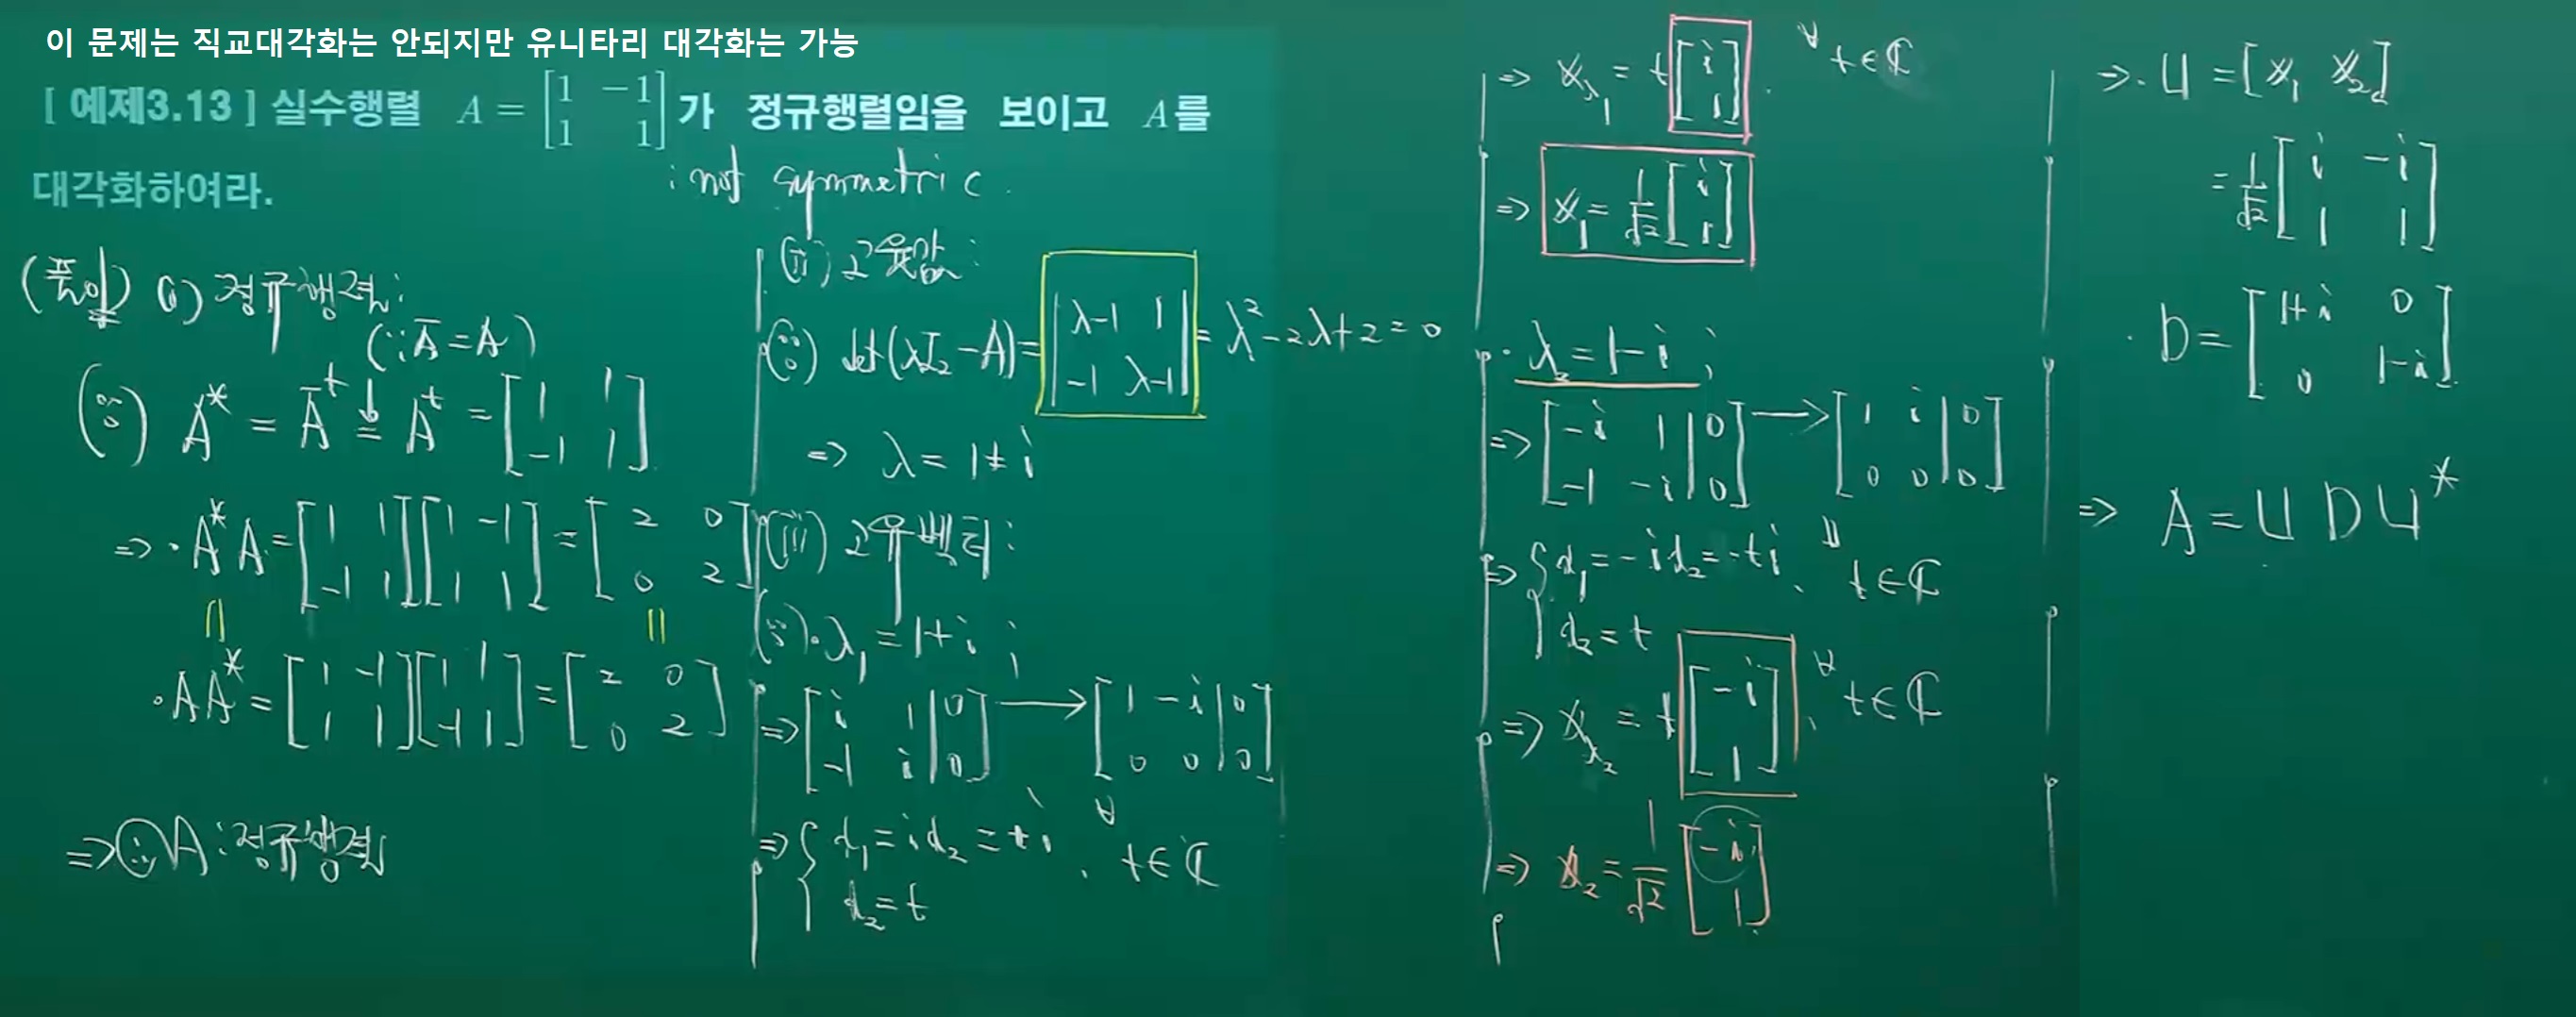 이 문제는 직교대각화는 안되지만 유니타리 대각화는 가능
[ 예제3.13 ] 실수행렬 A = [1 -1; 1 1] 가 정규행렬임을 보이고 A를
대각화하여라.
: not symmetric.
(풀이) (i) 정규행렬:
(∵ Ā = A)
(∵) A* = Āᵗ = Aᵗ = [1 1; -1 1]
=> · A*A = [1 1; -1 1][1 -1; 1 1] = [2 0; 0 2]
|| ||
· AA* = [1 -1; 1 1][1 1; -1 1] = [2 0; 0 2]
=> ∴ A : 정규행렬
(ii) 고윳값:
(∵) det(λI₂ - A) = |λ-1 1; -1 λ-1| = λ² - 2λ + 2 = 0
=> λ = 1 ± i
(iii) 고유벡터:
(∵) · λ₁ = 1+i ;
=> [i 1 | 0; -1 i | 0] → [1 -i | 0; 0 0 | 0]
=> { x₁ = ix₂ = ti
x₂ = t , ∀t ∈ ℂ
=> x_λ₁ = t[i; 1], ∀t ∈ ℂ
=> x₁ = 1/√2 [i; 1]
· λ₂ = 1-i ;
=> [-i 1 | 0; -1 -i | 0] → [1 i | 0; 0 0 | 0]
=> { x₁ = -ix₂ = -ti , ∀t ∈ ℂ
x₂ = t
=> x_λ₂ = t[-i; 1], ∀t ∈ ℂ
=> x₂ = 1/√2 [-i; 1]
=> · U = [x₁ x₂]
= 1/√2 [i -i; 1 1]
· D = [1+i 0; 0 1-i]
=> A = U D U*